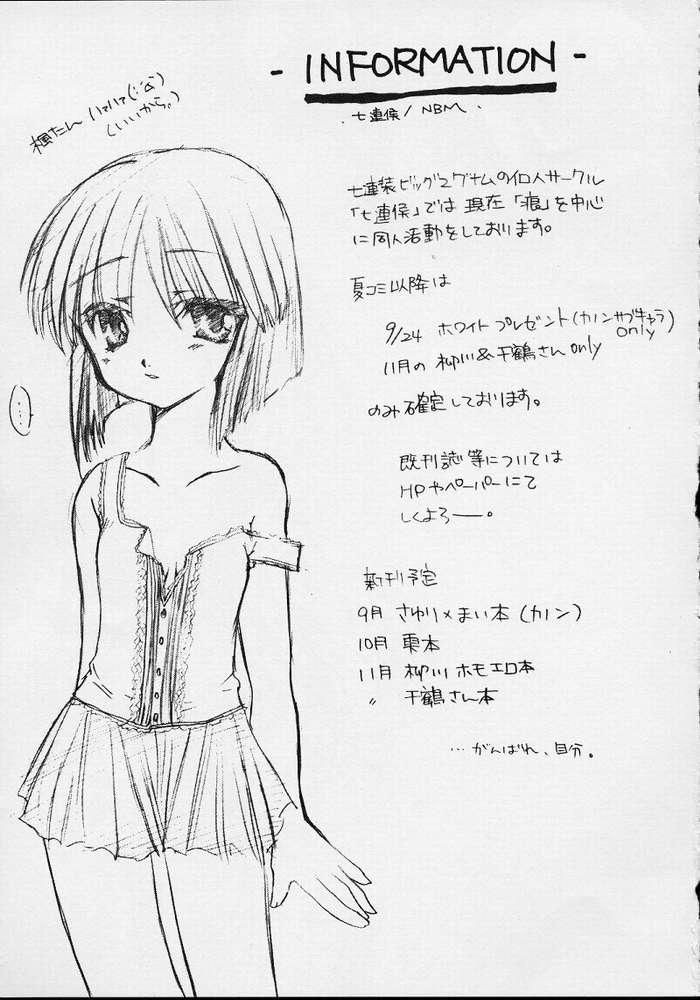 - INFORMATION -
七連侯 / NBM
楓たん ハァハァ(;´Д`)
(いいから。)
七連装ビッグマグナムの個人サークル
「七連侯」では現在「痕」を中心
に同人活動をしております。
夏コミ以降は
9/24 ホワイトプレゼント(カノンサブキャラ)
only
11月の 柳川&千鶴さん only
のみ確定しております。
既刊誌等については
HPやペーパーにて
しくよろー。
新刊予定
9月 さゆり×まい本 (カノン)
10月 雫本
11月 柳川 ホモエロ本
〃 千鶴さん本
…がんばれ、自分。
(…)